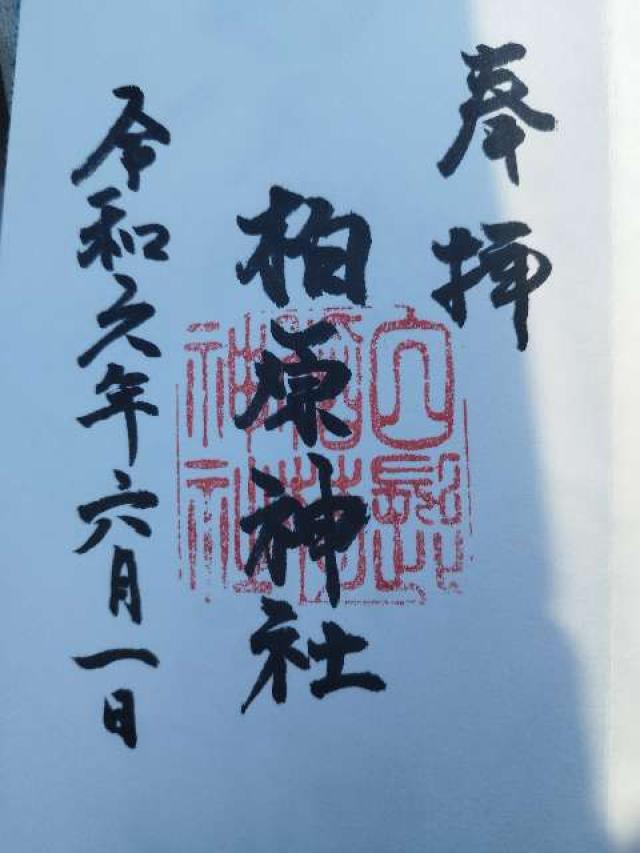 奉拝
柏原神社
令和六年六月一日